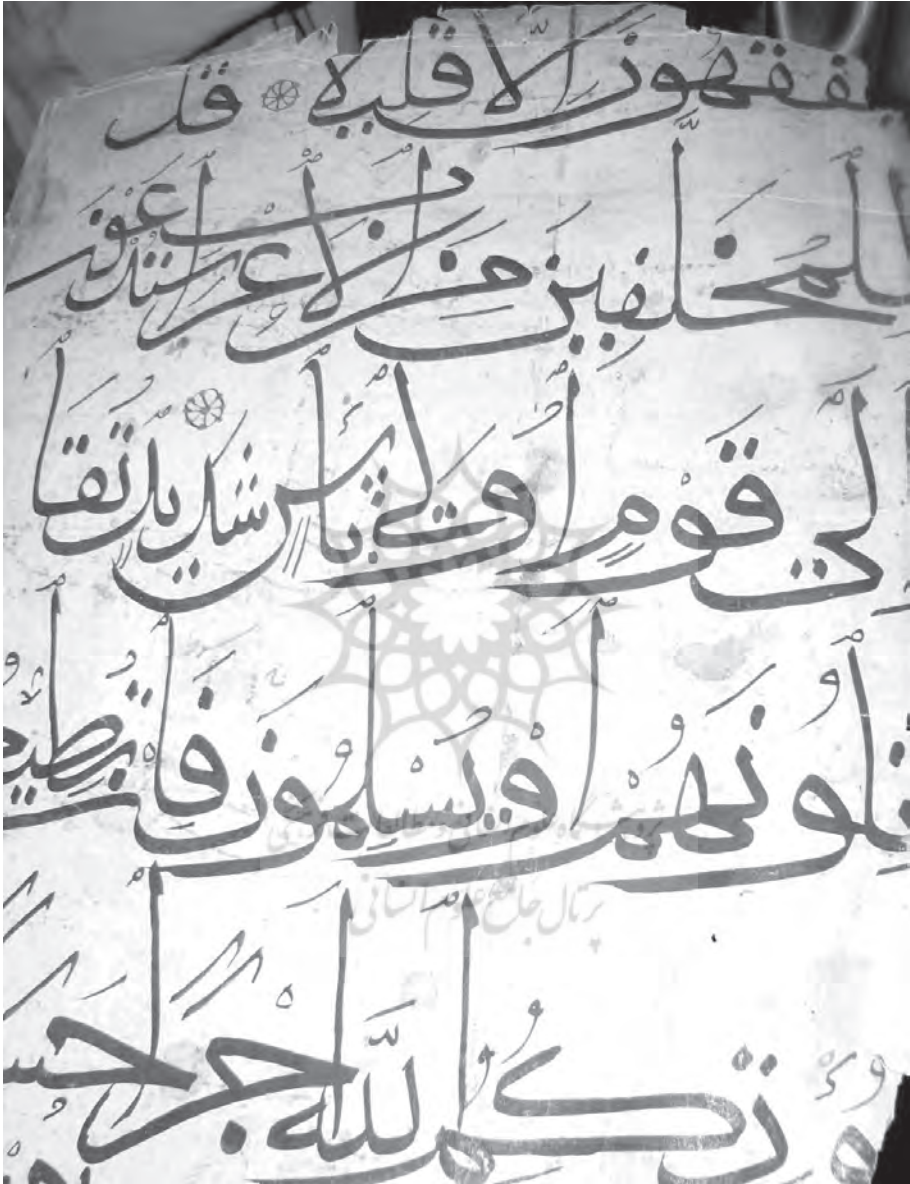 يفقهون إلّا قليلا قل
للمخلّفين من الأعراب ستدعون
إلى قوم أولي بأس شديد تقا
تلونهم أو يسلمون فإن تطيعو
يؤتكم اللّه أجرا حسـ
پژوهشگاه علوم انسانی و مطالعات فرهنگی
پرتال جامع علوم انسانی